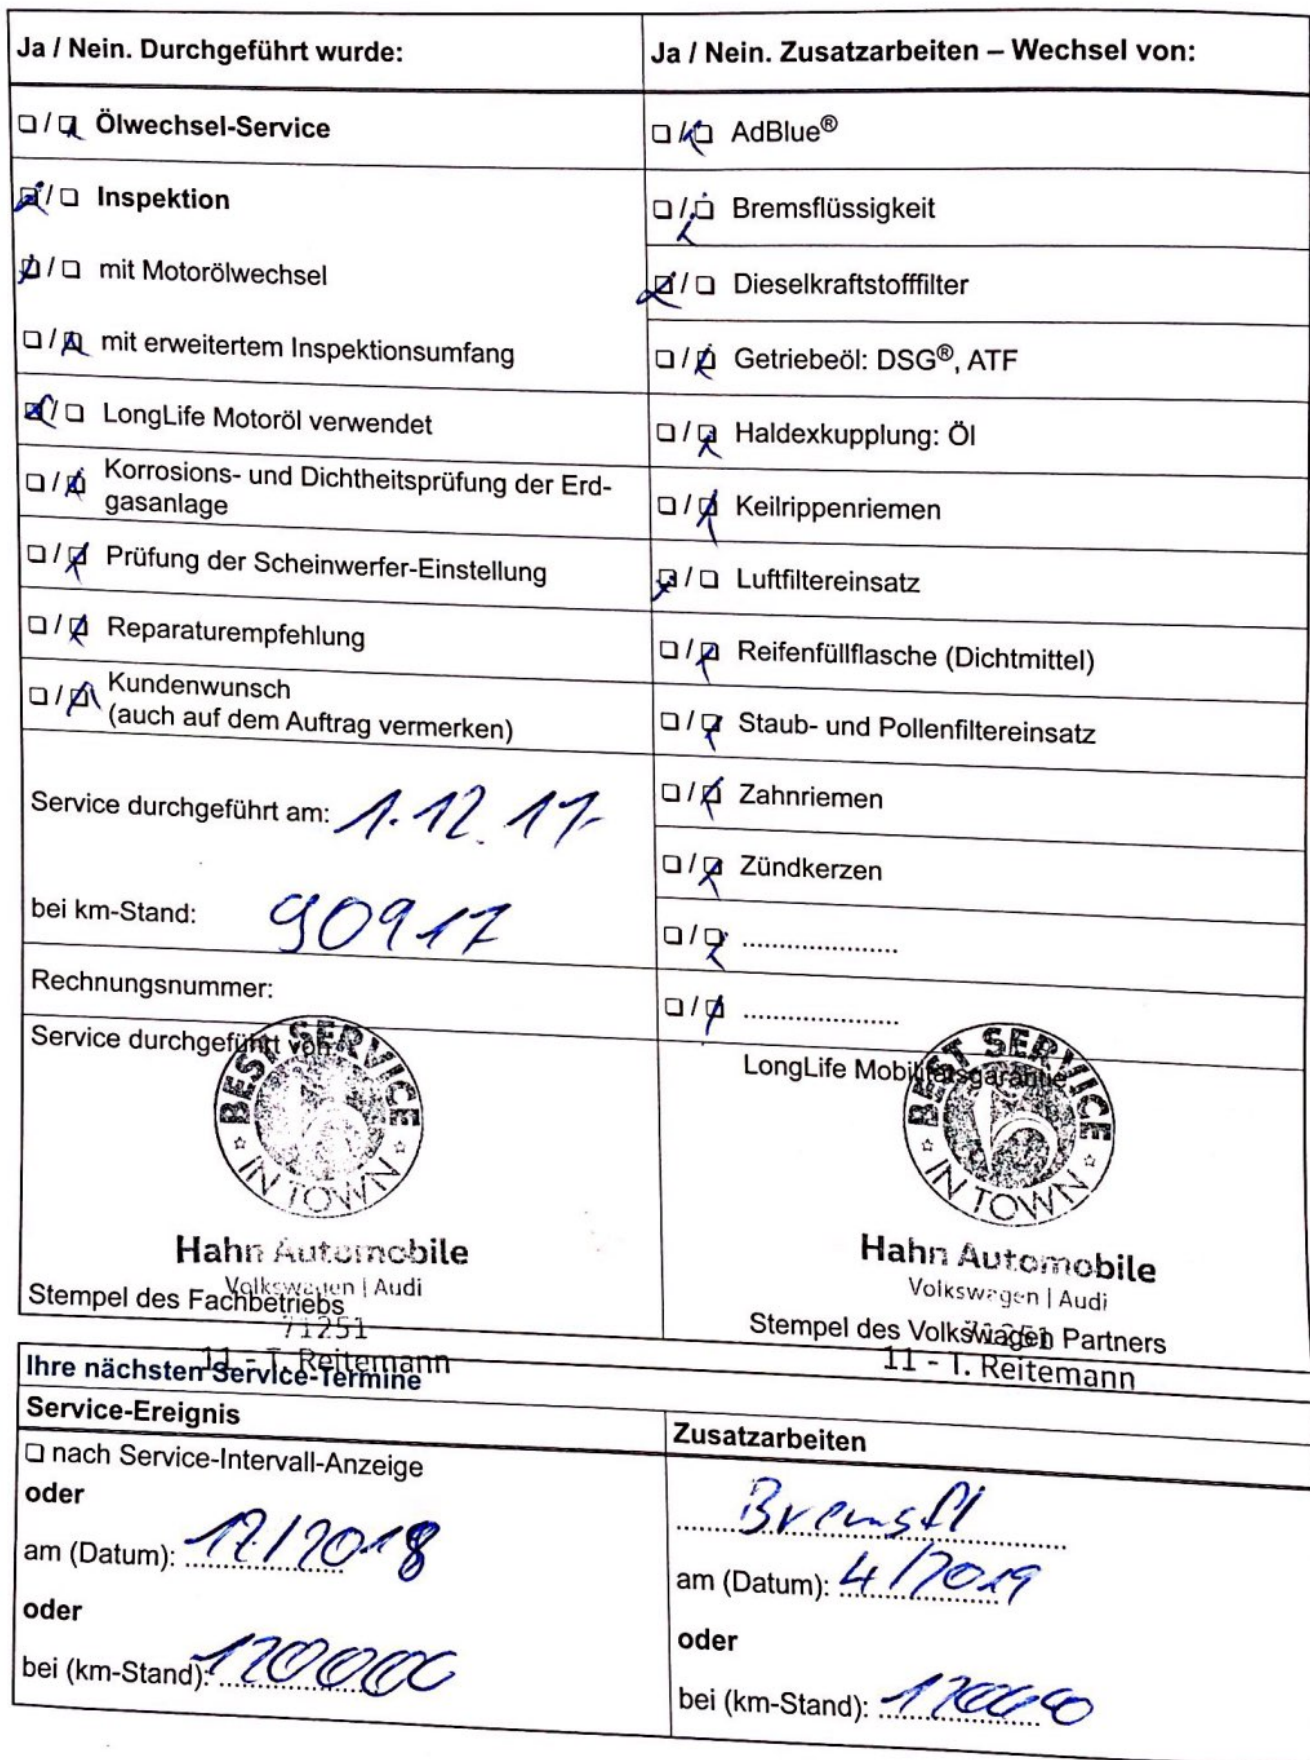 Ja / Nein. Durchgeführt wurde:
☐ / ☒ Ölwechsel-Service
☒ / ☐ Inspektion
☒ / ☐ mit Motorölwechsel
☐ / ☒ mit erweitertem Inspektionsumfang
☒ / ☐ LongLife Motoröl verwendet
☐ / ☒ Korrosions- und Dichtheitsprüfung der Erd-
gasanlage
☐ / ☒ Prüfung der Scheinwerfer-Einstellung
☐ / ☒ Reparaturempfehlung
☐ / ☒ Kundenwunsch
(auch auf dem Auftrag vermerken)
Service durchgeführt am: 1.12.17
bei km-Stand: 90917
Rechnungsnummer:
Service durchgeführt von
BEST SERVICE
IN TOWN
Hahn Automobile
Volkswagen | Audi
Stempel des Fachbetriebs
71251
11 - T. Reitemann
Ja / Nein. Zusatzarbeiten – Wechsel von:
☐ / ☒ AdBlue®
☐ / ☒ Bremsflüssigkeit
☒ / ☐ Dieselkraftstofffilter
☐ / ☒ Getriebeöl: DSG®, ATF
☐ / ☒ Haldexkupplung: Öl
☐ / ☒ Keilrippenriemen
☒ / ☐ Luftfiltereinsatz
☐ / ☒ Reifenfüllflasche (Dichtmittel)
☐ / ☒ Staub- und Pollenfiltereinsatz
☐ / ☒ Zahnriemen
☐ / ☒ Zündkerzen
☐ / ☒ .....................
☐ / ☒ .....................
LongLife Mobilitätsgarantie
BEST SERVICE
IN TOWN
Hahn Automobile
Volkswagen | Audi
Stempel des Volkswagen Partners
71251
11 - T. Reitemann
Ihre nächsten Service-Termine
Service-Ereignis
☐ nach Service-Intervall-Anzeige
oder
am (Datum): 12/2018
oder
bei (km-Stand): 120000
Zusatzarbeiten
Bremsfl
am (Datum): 4/2019
oder
bei (km-Stand): 120000